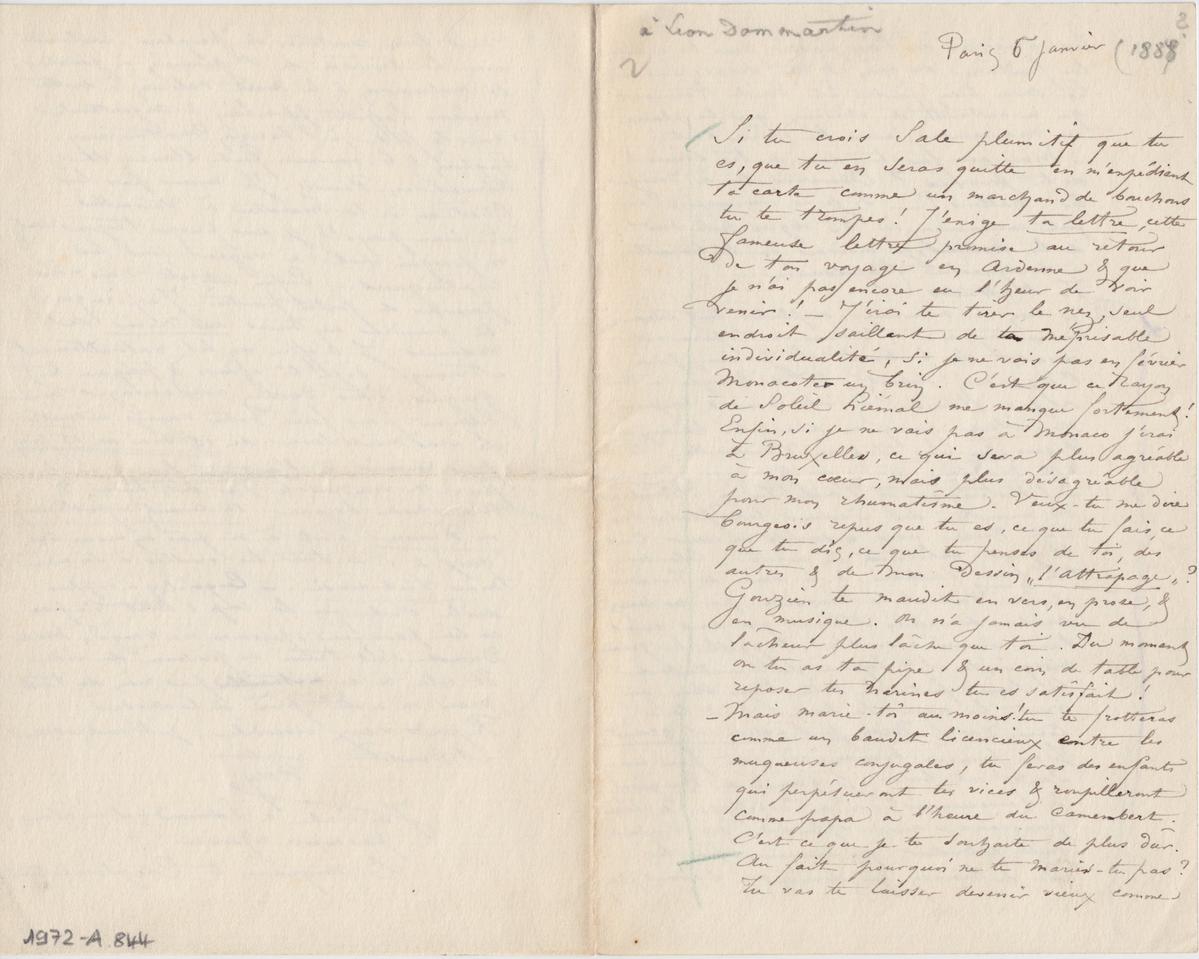 à Léon Dommartin
2
Paris 6 janvier (1888)
Si tu crois Sale plumitif que tu
es, que tu en seras quitte en m'expédient
ta carte comme un marchand de bouchons
tu te trompes! J'exige ta lettre, cette
fameuse lettre promise au retour
de ton voyage en Ardenne & que
je n'ai pas encore eu l'heur de voir
venir! – J'irai te tirer le nez, seul
endroit saillant de ta méprisable
individualité, Si je ne vais pas en février
Monacoter un brin. C'est que ce rayon
de Soleil hiémal me manque fortement!
Enfin, si je ne vais pas à Monaco j'irai
à Bruxelles, ce qui sera plus agréable
à mon cœur, mais plus désagréable
pour mon rhumatisme. Veux-tu me dire
bourgeois repus que tu es, ce que tu fais, ce
que tu dis, ce que tu penses de toi, des
autres & de mon Dessin „l'attrapage„?
Gouzien te maudit en vers, en prose, &
en musique. On n'a jamais vu de
lâcheur plus lâche que toi. Du moment
où tu as ta pipe & un coin de table pour
reposer tes narines tu es satisfait!
– Mais marie-toi au moins! tu te frotteras
comme un baudet licencieux contre les
muqueuses conjugales, tu feras des enfants
qui perpétueront tes vices & roupilleront
comme papa à l'heure du Camembert.
C'est ce que je te souhaite de plus dûr.
Au fait pourquoi ne te maries-tu pas?
Tu vas te laisser devenir vieux comme
1972-A.844